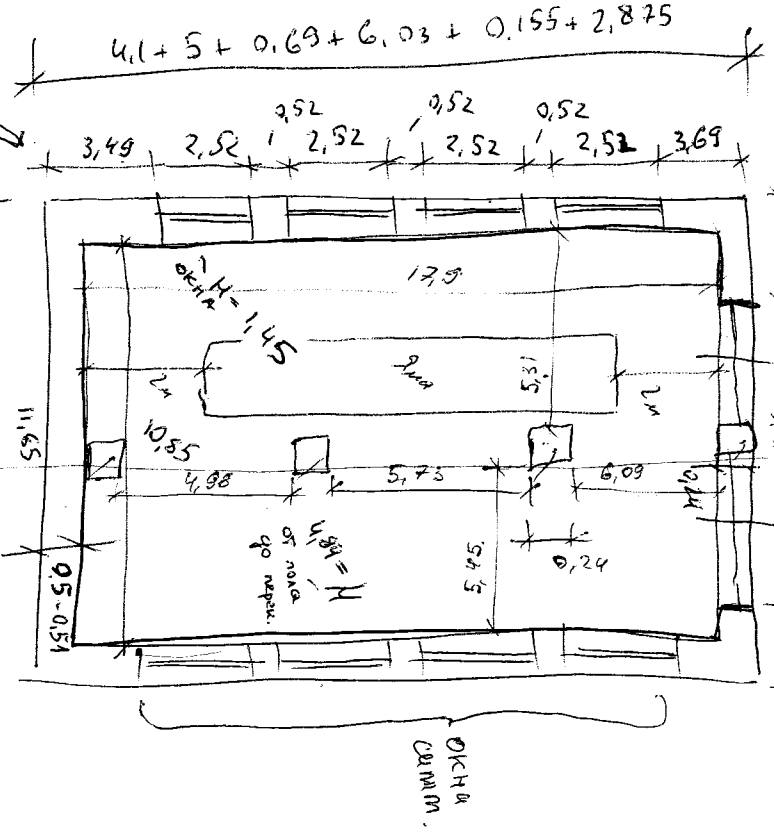 4,1 + 5 + 0.69 + 6,03 + 0.155 + 2,875
0,52 0,52 0,52
3,49 2,52 2,52 2,52 2,52 3,69
17,9
H = 1,45
окна
2м
5,31
2м
11,65
10,85
4,98 5,73 6,09
0,24
4,94 = H
от пола
до перек.
5,45
0,24
0,5-0,51
окна
симм.